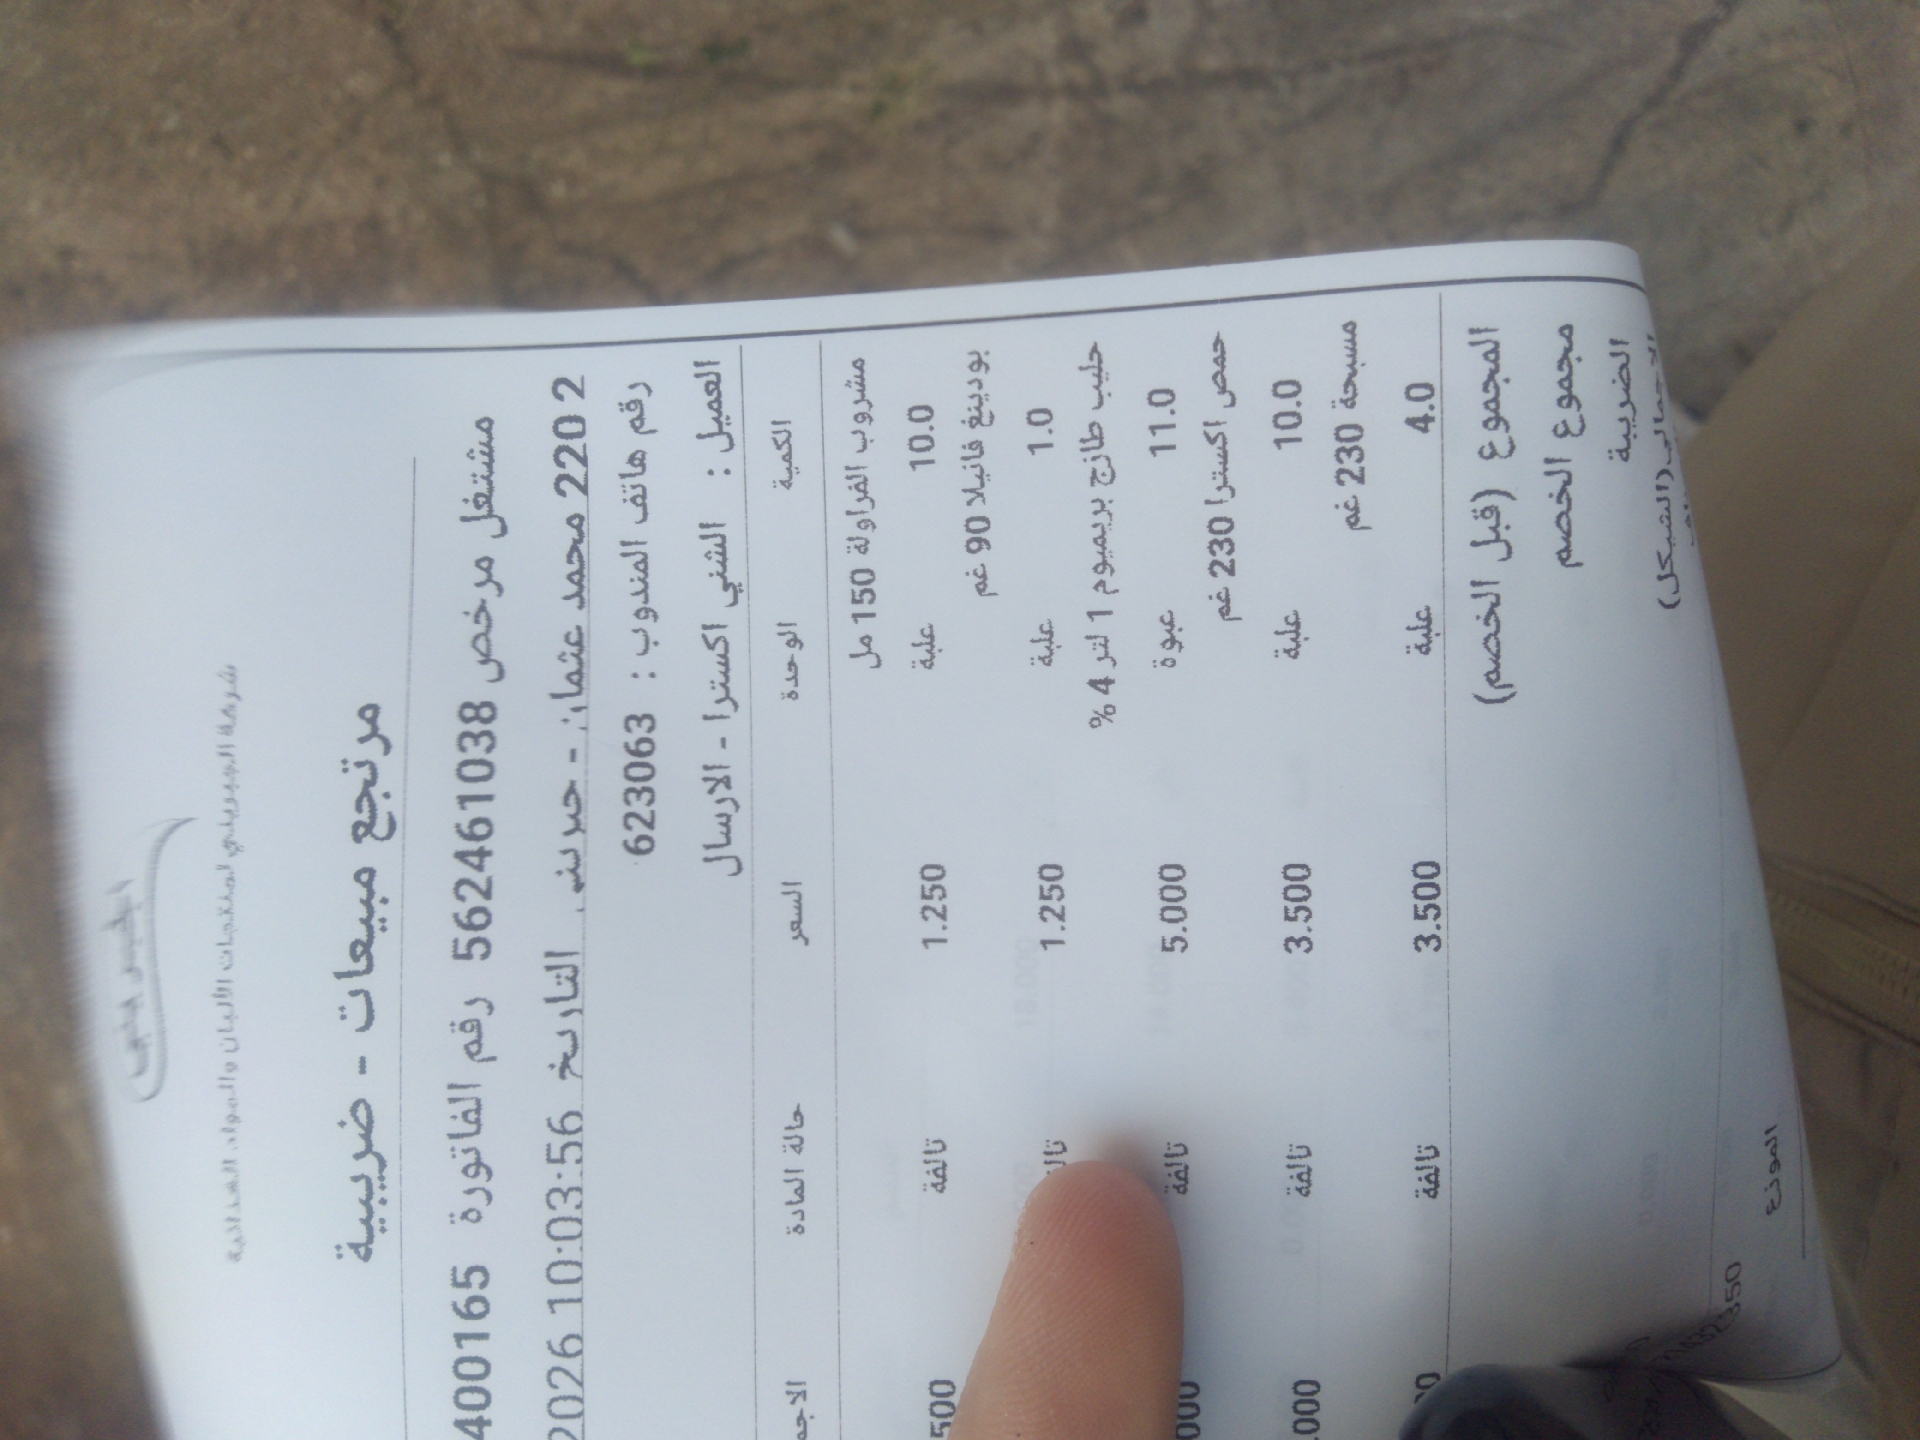 شركة الجبريني لمنتجات الألبان والمواد الغذائية
مرتجع مبيعات - ضريبية
مشتغل مرخص 562461038 رقم الفاتورة 400165
2 220 محمد عثمان - حبر التاريخ 2026 10:03:56
رقم هاتف المندوب : 623063
العميل : الشني اكسترا - الارسال
الكمية الوحدة السعر حالة المادة
مشروب الفراولة 150 مل
10.0 علبة 1.250 تالفة 500
بودينغ فانيلا 90 غم
1.0 علبة 1.250
حليب طازج بريميوم 1 لتر 4 %
11.0 عبوة 5.000 تالفة 000
حمص اكسترا 230 غم
10.0 علبة 3.500 تالفة 000.
مسبحة 230 غم
4.0 علبة 3.500 تالفة
المجموع (قبل الخصم)
مجموع الخصم
الضريبة
(الشيكل)
الموزع